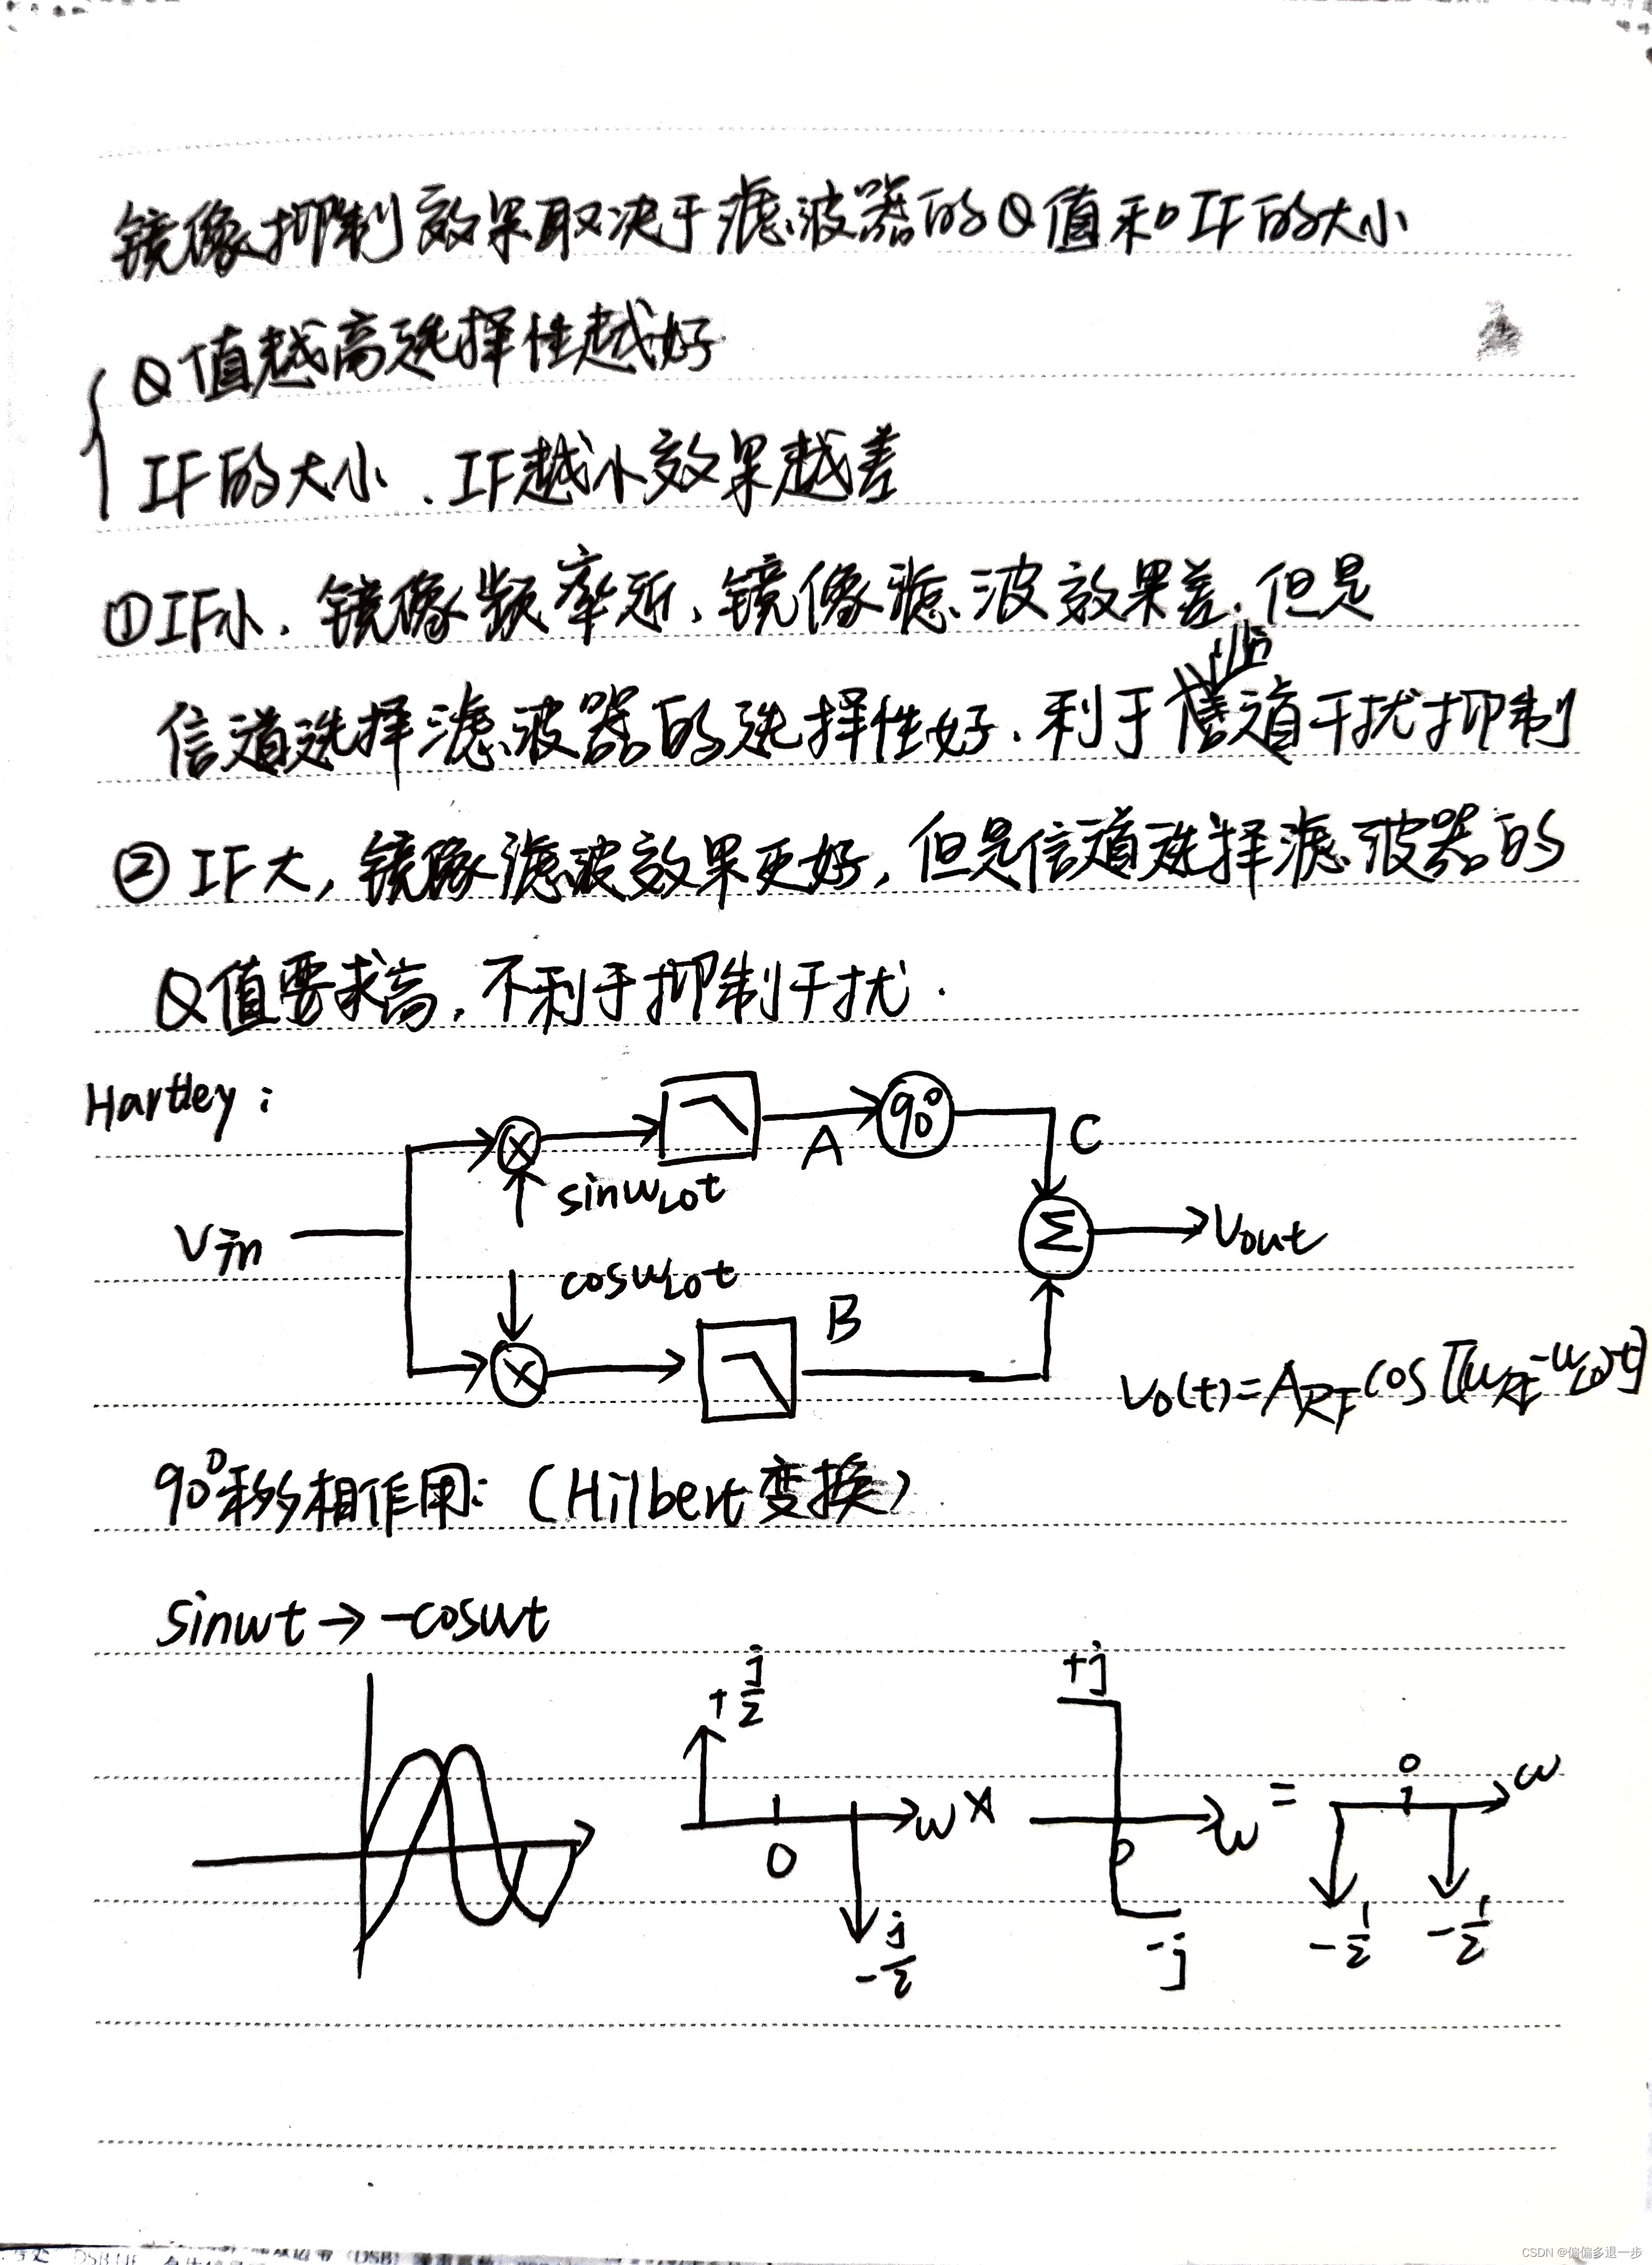 镜像抑制效果取决于滤波器的Q值和IF的大小
Q值越高选择性越好
IF的大小、IF越小效果越差
①IF小、镜像频率近、镜像滤波效果差,但是
邻
信道选择滤波器的选择性好、利于信道干扰抑制
②IF大,镜像滤波效果更好,但是信道选择滤波器的
Q值要求高,不利于抑制干扰.
Hartley:
90°
A
C
sinω_LO t
Vin
Σ
Vout
cosω_LO t
B
Vo(t)=A_RF cos[(ω_RF-ω_LO)t]
90°移相作用:(Hilbert变换)
sinωt→-cosωt
+j/2
+j
0
ω × ω = ω
0
0
-j/2
-j
-1/2
-1/2
CSDN @偏偏多退一步